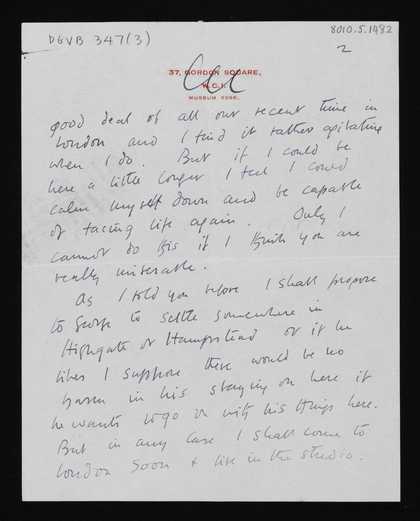 DGVB 347(3)
8010.5.1482
2
37, GORDON SQUARE,
W.C.1.
MUSEUM
good deal of all our recent time in
London and I find it rather agitating
when I do. But if I could be
here a little longer I feel I could
calm myself down and be capable
of facing life again. Only I
cannot do this if I think you are
really miserable.
As I told you before I shall propose
to George to settle somewhere in
Highgate or Hampstead or if he
likes I suppose there would be no
harm in his staying on here if
he wants to go on with his things here.
But in any case I shall come to
London soon & live in the studio.